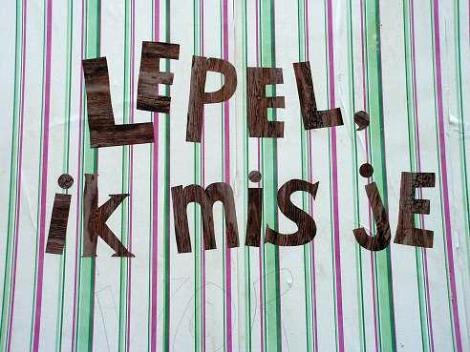 LEPEL,
ik mis jE